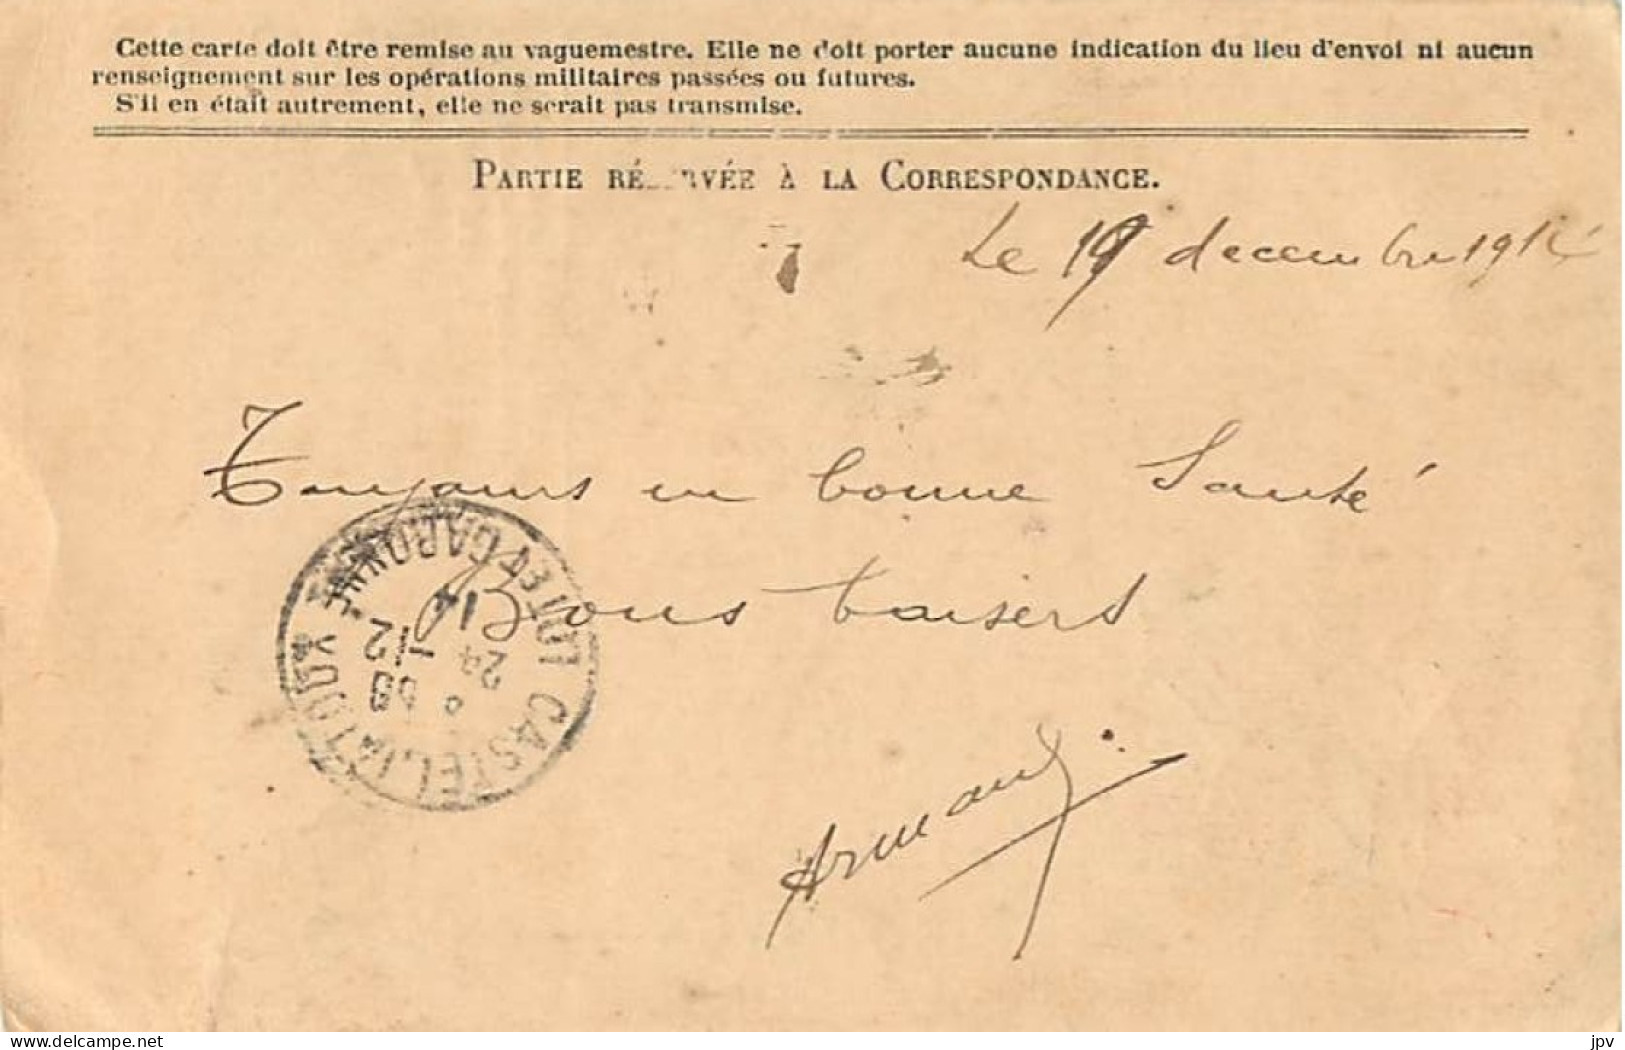 Cette carte doit être remise au vaguemestre. Elle ne doit porter aucune indication du lieu d'envoi ni aucun
renseignement sur les opérations militaires passées ou futures.
S'il en était autrement, elle ne serait pas transmise.
PARTIE RÉ RVÉE À LA CORRESPONDANCE.
Le 19 decembre 1914
Toujours en bonne Santé
Bons baisers
Armand
CASTELJALOUX
LOT ET GARONNE
24
12
14
delcampe.net
jpv